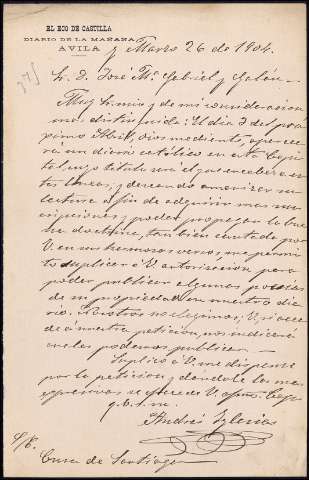 EL ECO DE CASTILLA
DIARIO DE LA MAÑANA
AVILA y Marzo 26 de 1904.
Sr. D. José Mª Gabriel y Galán.
Muy Sr. mio y de mi consideracion
mas distinguida: El dia 3 del pro
ximo Abril, Dios mediante, aparece
rá un diario católico en esta Capi
tal, cuyo titulo será el que encabeza es
tas lineas, y deseando amenizar su
lectura a fin de adquirir mas sus
cripciones y poder propagar la bue
na doctrina, tan bien cantada por
V. en sus hermosos versos, me permi
to suplicar á V. autorizacion para
poder publicar algunas poesias
de su propiedad en nuestro dia
rio. Nosotros no elegimos; V. si acce
de á nuestra petición, nos indicará
cuales podemos publicar.
Suplico á V. me dispense
por la peticion y dandole las mas
expresivas se ofrece de V. afmo. Capn
q. b. s. m.
Andrés Iglesias
S/C.
Cura de Santiago